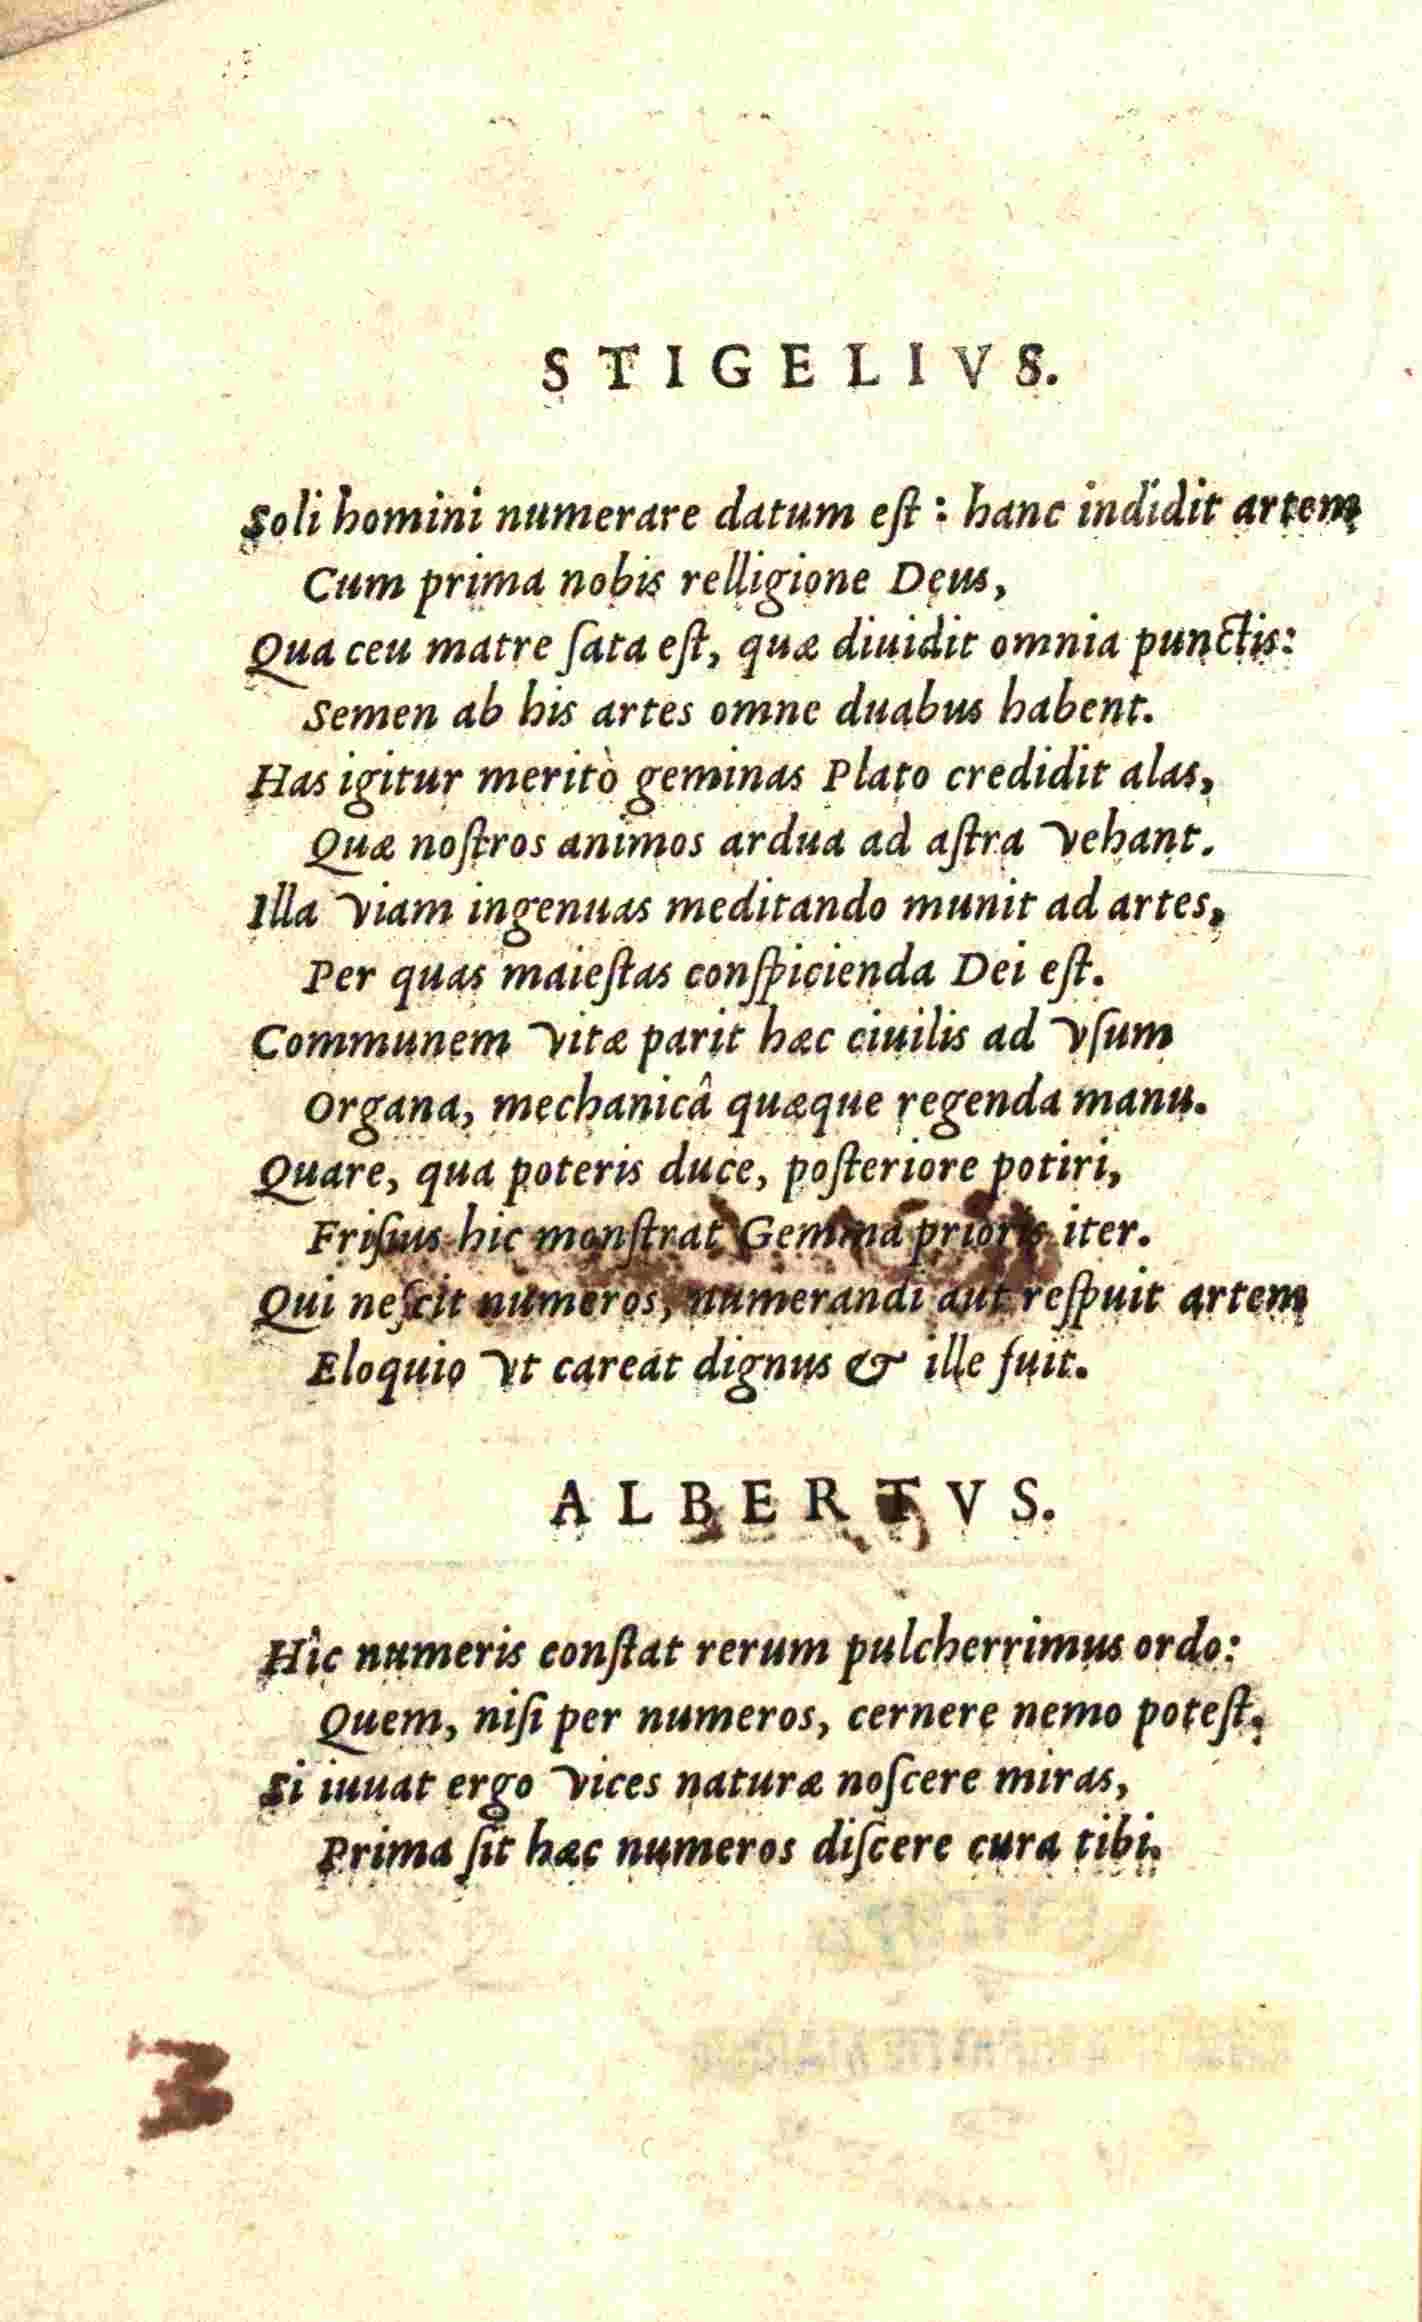 STIGELIVS.
Soli homini numerare datum eſt : hanc indidit artem
Cum prima nobis relligione Deus,
Qua ceu matre ſata eſt, quæ diuidit omnia punctis:
Semen ab his artes omne duabus habent.
Has igitur meritò geminas Plato credidit alas,
Quæ noſtros animos ardua ad aſtra vehant.
Illa viam ingenuas meditando munit ad artes,
Per quas maieſtas conſpicienda Dei eſt.
Communem vitæ parit hæc ciuilis ad vſum
Organa, mechanicâ quæque regenda manu.
Quare, qua poteris duce, poſteriore potiri,
Friſius hic monſtrat Gemma prioris iter.
Qui neſcit numeros, numerandi aut reſpuit artem
Eloquio vt careat dignus & ille fuit.
ALBERTVS.
Hîc numeris conſtat rerum pulcherrimus ordo:
Quem, niſi per numeros, cernere nemo poteſt.
Si iuuat ergo vices naturæ noſcere miras,
Prima ſit hæc numeros diſcere cura tibi.